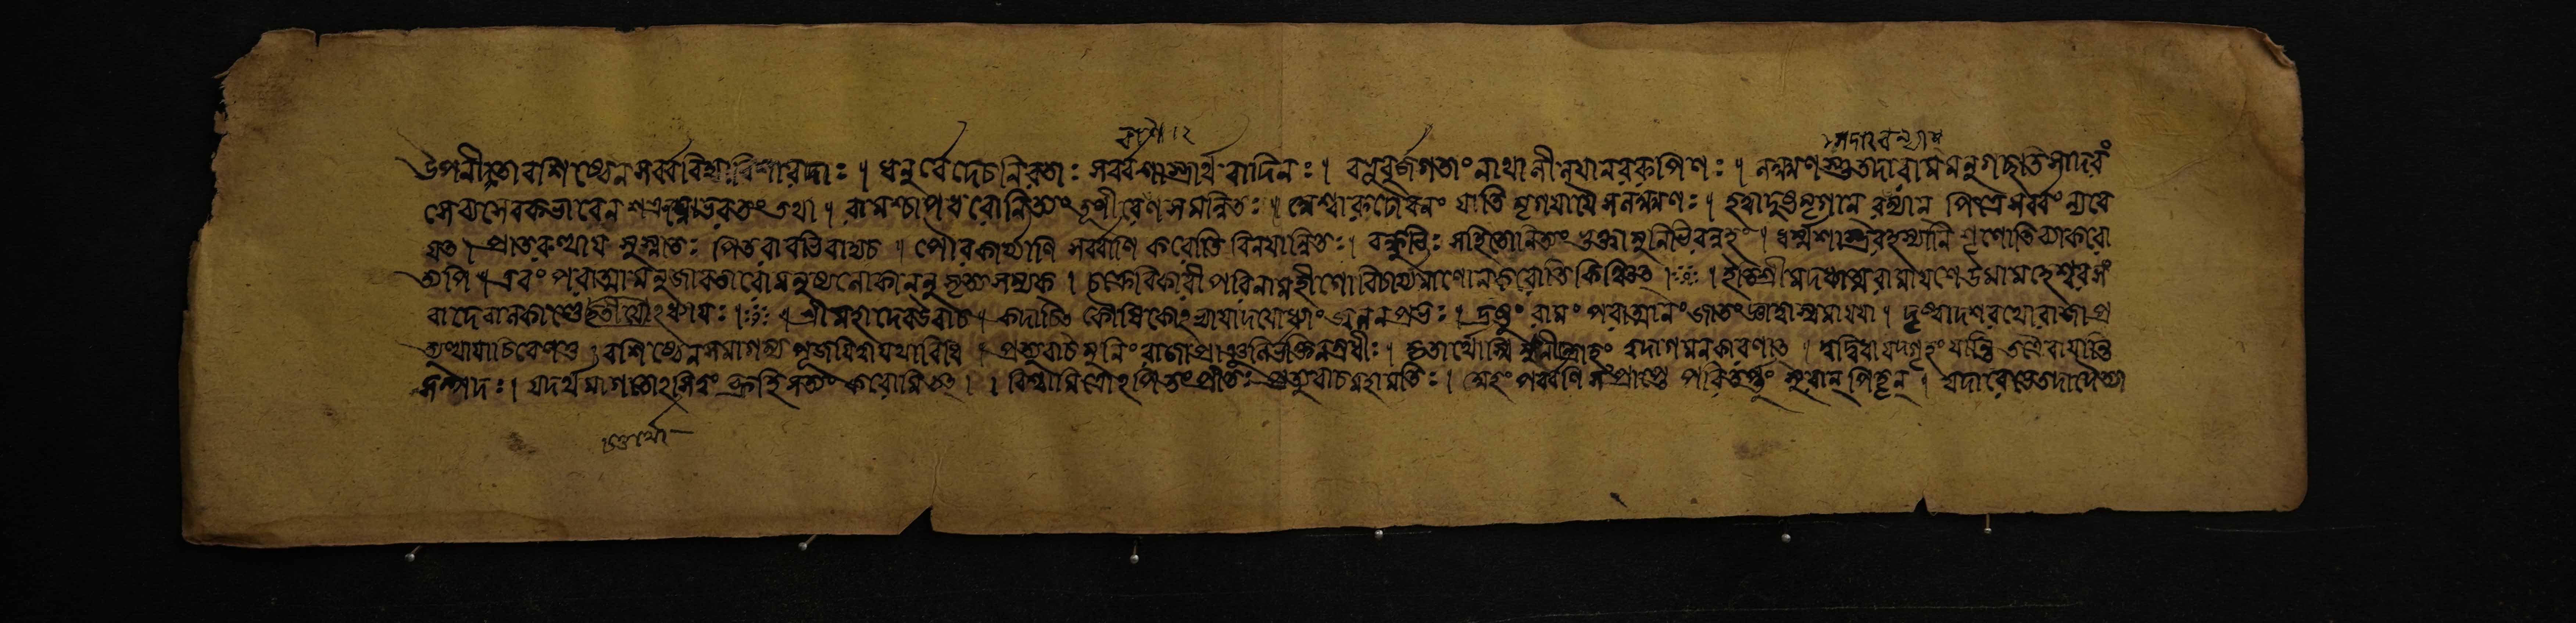 উপনীতা বশিষ্ঠেন সর্ব্ববিদ্যাবিশারদাঃ । ধনুর্ব্বেদেচনিরতাঃ সর্ব্বশাস্ত্রার্থবাদিনঃ । বভুবুর্জগতাং নাথা নীলয়া নররূপিণঃ । লক্ষ্মণস্তুতদারামমনুগচ্ছতি সাদরং
সেব্যসেবকভাবেন শত্রুঘ্নোভরতং তথা । রামশ্চাপধরোনিত্যং তূণীরেণ সমন্বিতঃ । অশ্বারূঢোবনং যাতি মৃগয়ায়ৈ সলক্ষ্মণঃ । হত্বাদুষ্টমৃগান পিত্রে সর্ব্বং ন্যবে
য়ত । প্রাতরুত্থায় সুস্নাতঃ পিতরাবভিবাদ্যচ । পৌরকার্য্যাণি সর্ব্বাণি করোতি বিনয়ান্বিতঃ । বন্ধুভিঃ সহিতোনিত্যং ভুক্ত্বা মুনিভিরন্বহং । ধর্ম্মশাস্ত্ররহস্যানি শৃণোতি ব্যাকরো
ত্যপি । এবং পরাত্মা মনুজাবতারো মনুষ্যলোকাননুসৃত্য সম্যক । চক্রেবিকারী পরিণামহীনো বিচার্য্যমাণো নকরোতি কিঞ্চিত । ইতি শ্রীমদধ্যাত্মরামায়ণে উমামহেশ্বরসং
বাদে বালকাণ্ডে তৃতীয়োঽধ্যায়ঃ । শ্রীমহাদেব উবাচ । কদাচিৎ কৌশিকোঽভ্যায়াদযোধ্যাং জ্বলনপ্রভঃ । দ্রষ্টুং রামং পরাত্মানং জাতং জ্ঞাত্বা স্বমায়য়া । দৃষ্ট্বা দশরথো রাজা প্র
ত্যুত্থায়াচিরেণতু । বশিষ্ঠেন সমাগম্য পূজয়িত্বা যথাবিধি । প্রত্যুবাচ মুনিং রাজা প্রাঞ্জলির্ভক্তিনম্রধীঃ । কৃতার্থোস্মি মুনীন্দ্রাহং ত্বদাগমনকারণাত । ত্বদ্বিধা যদ্গৃহং যান্তি তত্রৈবায়ান্তি
সম্পদঃ । যদর্থমাগতোঽসি ত্বং ব্রূহি সত্যং করোমি তত্ । বিশ্বামিত্রোঽপি তং প্রীতঃ প্রত্যুবাচ মহামতিঃ । অহং পর্ব্বণি সংপ্রাপ্তে পরিতর্প্তুং সুরান্ পিতৄন্ । যদারভে তদা দৈত্যা